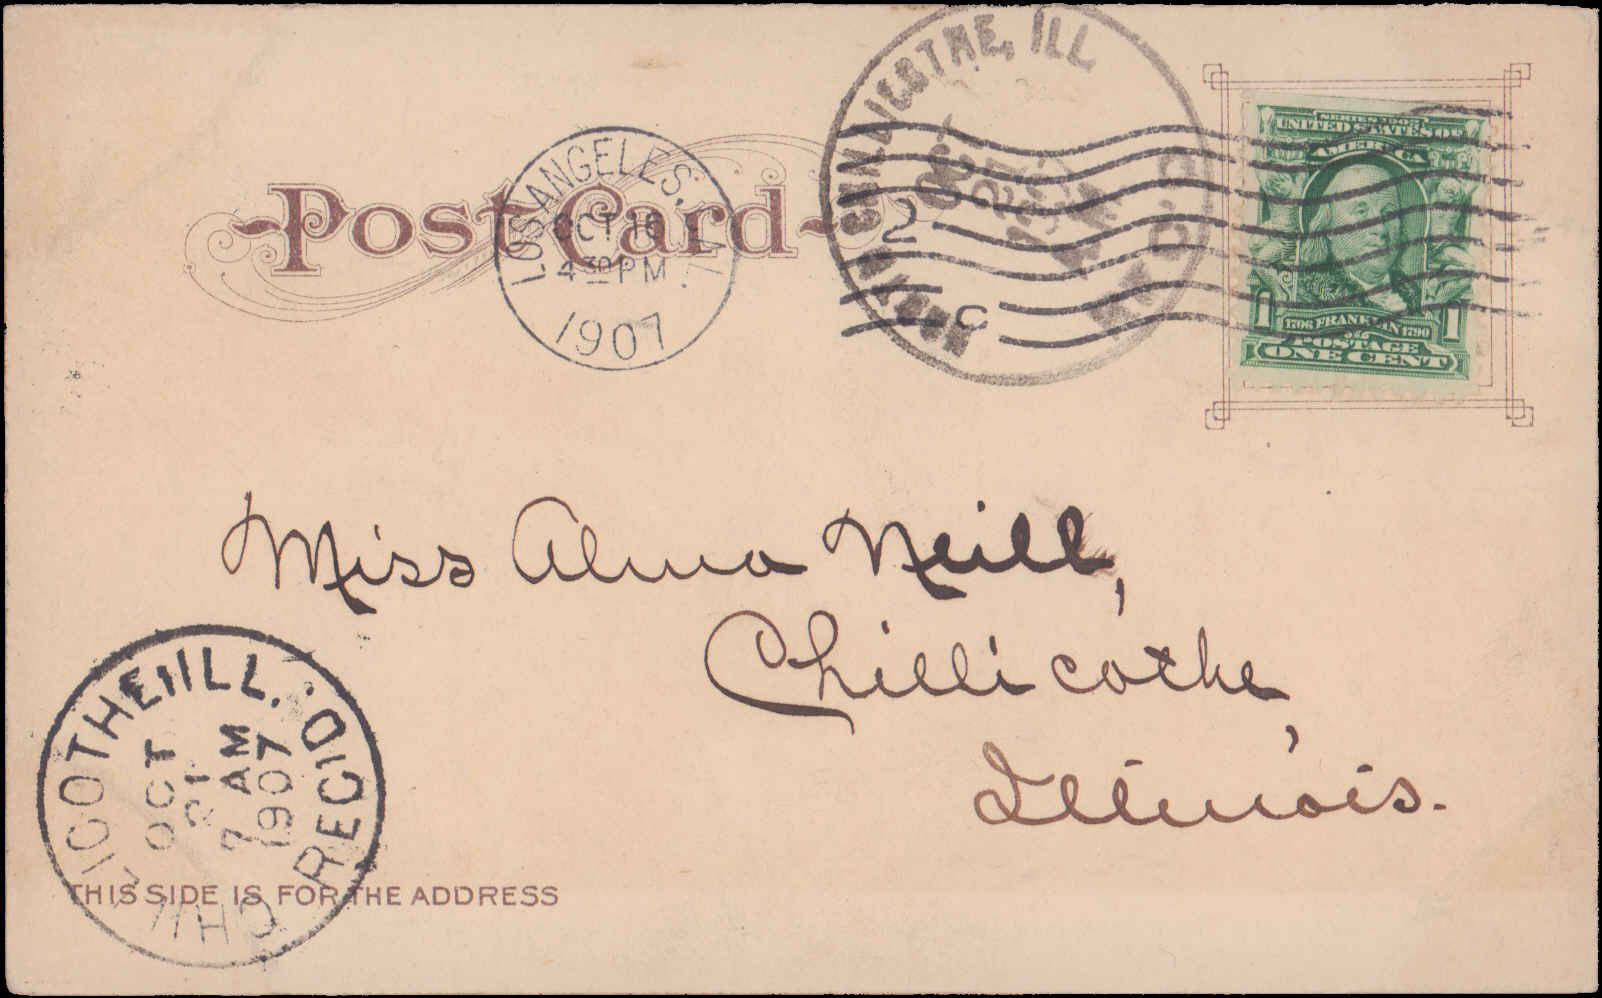 Post Card
LOS ANGELES, CAL.
OCT 16
4 30 PM
1907
2
C
ILL
OCT
SERIES 1902
UNITED STATES OF
AMERICA
1 1
1706 FRANKLIN 1790
POSTAGE
ONE CENT
Miss Alma Neill,
Chillicothe,
Illinois.
CHILLICOTHE, ILL. REC'D.
OCT
21
7 AM
1907
THIS SIDE IS FOR THE ADDRESS